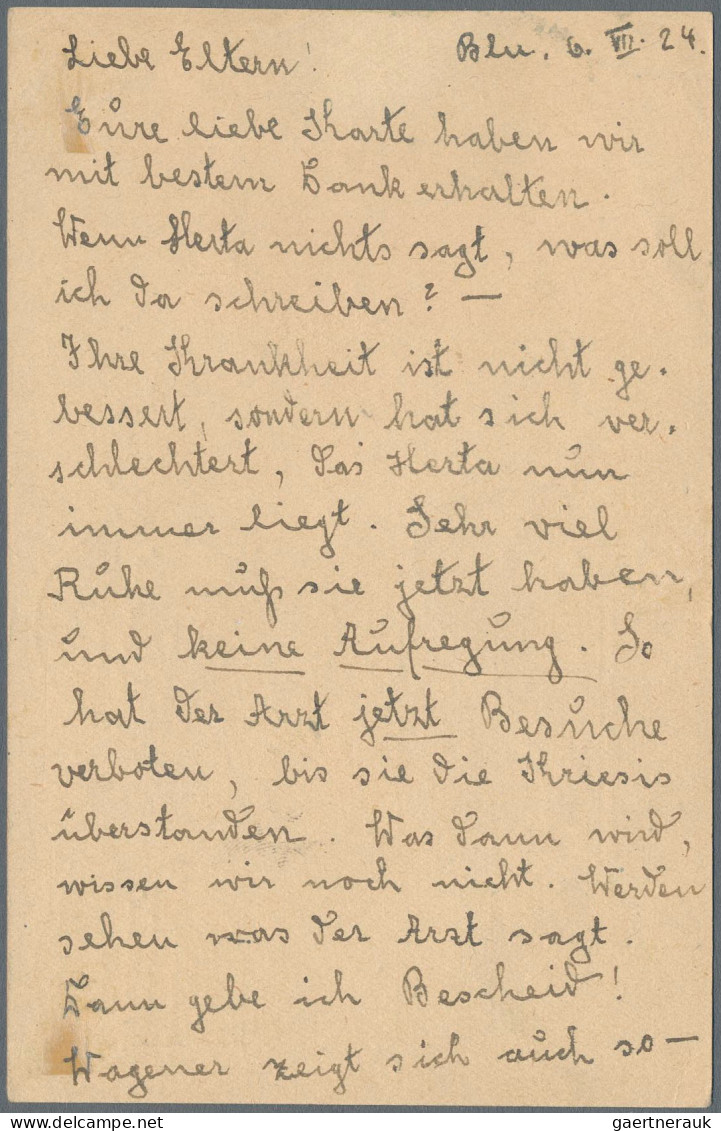 Liebe Eltern! Bln. 6. VII. 24.
Eure liebe Karte haben wir
mit bestem Dank erhalten.
Wenn Herta nichts sagt, was soll
ich da schreiben? —
Ihre Krankheit ist nicht ge-
bessert, sondern hat sich ver-
schlechtert, das Herta nun
immer liegt. Sehr viel
Ruhe muß sie jetzt haben,
und keine Aufregung. So
hat der Arzt jetzt Besuche
verboten, bis sie die Kriesis
überstanden. Was dann wird,
wissen wir noch nicht. Werden
sehen was der Arzt sagt.
Dann gebe ich Bescheid!
Wagener zeigt sich auch so —
gaertnerauk